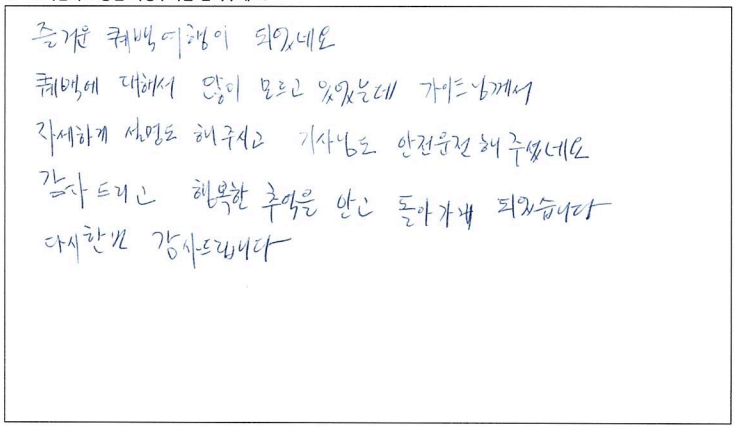 즐거운 퀘백여행이 되었네요
퀘백에 대해서 많이 모르고 있었는데 가이드님께서
자세하게 설명도 해주시고 기사님도 안전운전해주셨네요
감사드리고 행복한 추억을 안고 돌아가게 되었습니다
다시한번 감사드립니다